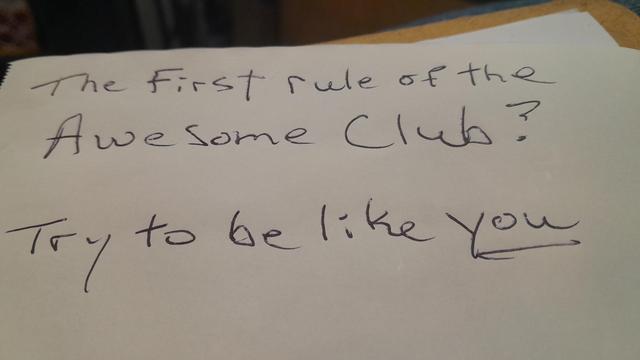 The First rule of the
Awesome Club?
Try to be like you